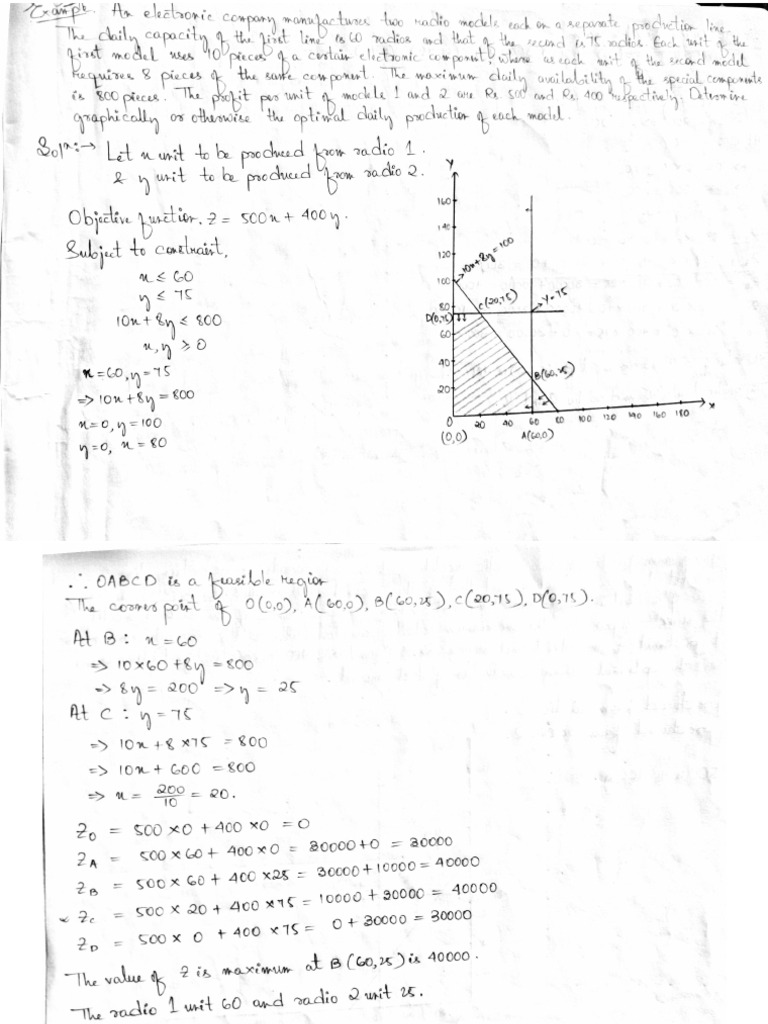 Example. An electronic company manufactures two radio models each on a separate production line.
The daily capacity of the first line is 60 radios and that of the second is 75 radios. Each unit of the
first model uses 10 pieces of a certain electronic component, where as each unit of the second model
requires 8 pieces of the same component. The maximum daily availability of the special components
is 800 pieces. The profit per unit of models 1 and 2 are Rs. 500 and Rs. 400 respectively. Determine
graphically or otherwise the optimal daily production of each model.
Solⁿ:→ Let x unit to be produced from radio 1.
& y unit to be produced from radio 2.
Objective function, Z = 500x + 400y.
Subject to constraint,
x ≤ 60
y ≤ 75
10x + 8y ≤ 800
x, y ≥ 0
x = 60, y = 75
⇒ 10x + 8y = 800
x = 0, y = 100
y = 0, x = 80
Y
160
140
120
10x + 8y = 100
100
C(20,75)
80
Y = 75
D(0,75)
60
40
B(60,25)
20
0 20 40 60 80 100 120 140 160 180 x
(0,0) A(60,0)
∴ OABCD is a feasible region
The corner point of O(0,0), A(60,0), B(60,25), C(20,75), D(0,75).
At B : x = 60
⇒ 10×60 + 8y = 800
⇒ 8y = 200 ⇒ y = 25
At C : y = 75
⇒ 10x + 8×75 = 800
⇒ 10x + 600 = 800
⇒ x = 200/10 = 20.
Z_O = 500×0 + 400×0 = 0
Z_A = 500×60 + 400×0 = 30000+0 = 30000
Z_B = 500×60 + 400×25 = 30000+10000 = 40000
Z_C = 500×20 + 400×75 = 10000+30000 = 40000
Z_D = 500×0 + 400×75 = 0+30000 = 30000
The value of Z is maximum at B(60,25) is 40000.
The radio 1 unit 60 and radio 2 unit 25.